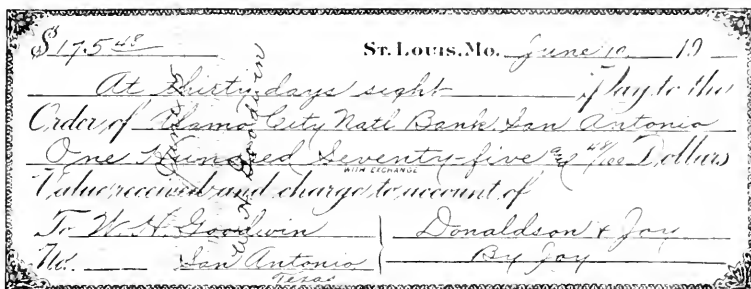 $175 48/ St. Louis, Mo. June 10 19
At thirty days sight Pay to the
Order of Alamo City Natl Bank, San Antonio
One Hundred Seventy-five and 48/100 Dollars
WITH EXCHANGE
Value received and charge to account of
To W. H. Goodwin Donaldson & Joy
No. San Antonio By Joy
Texas
W. H. Goodwin